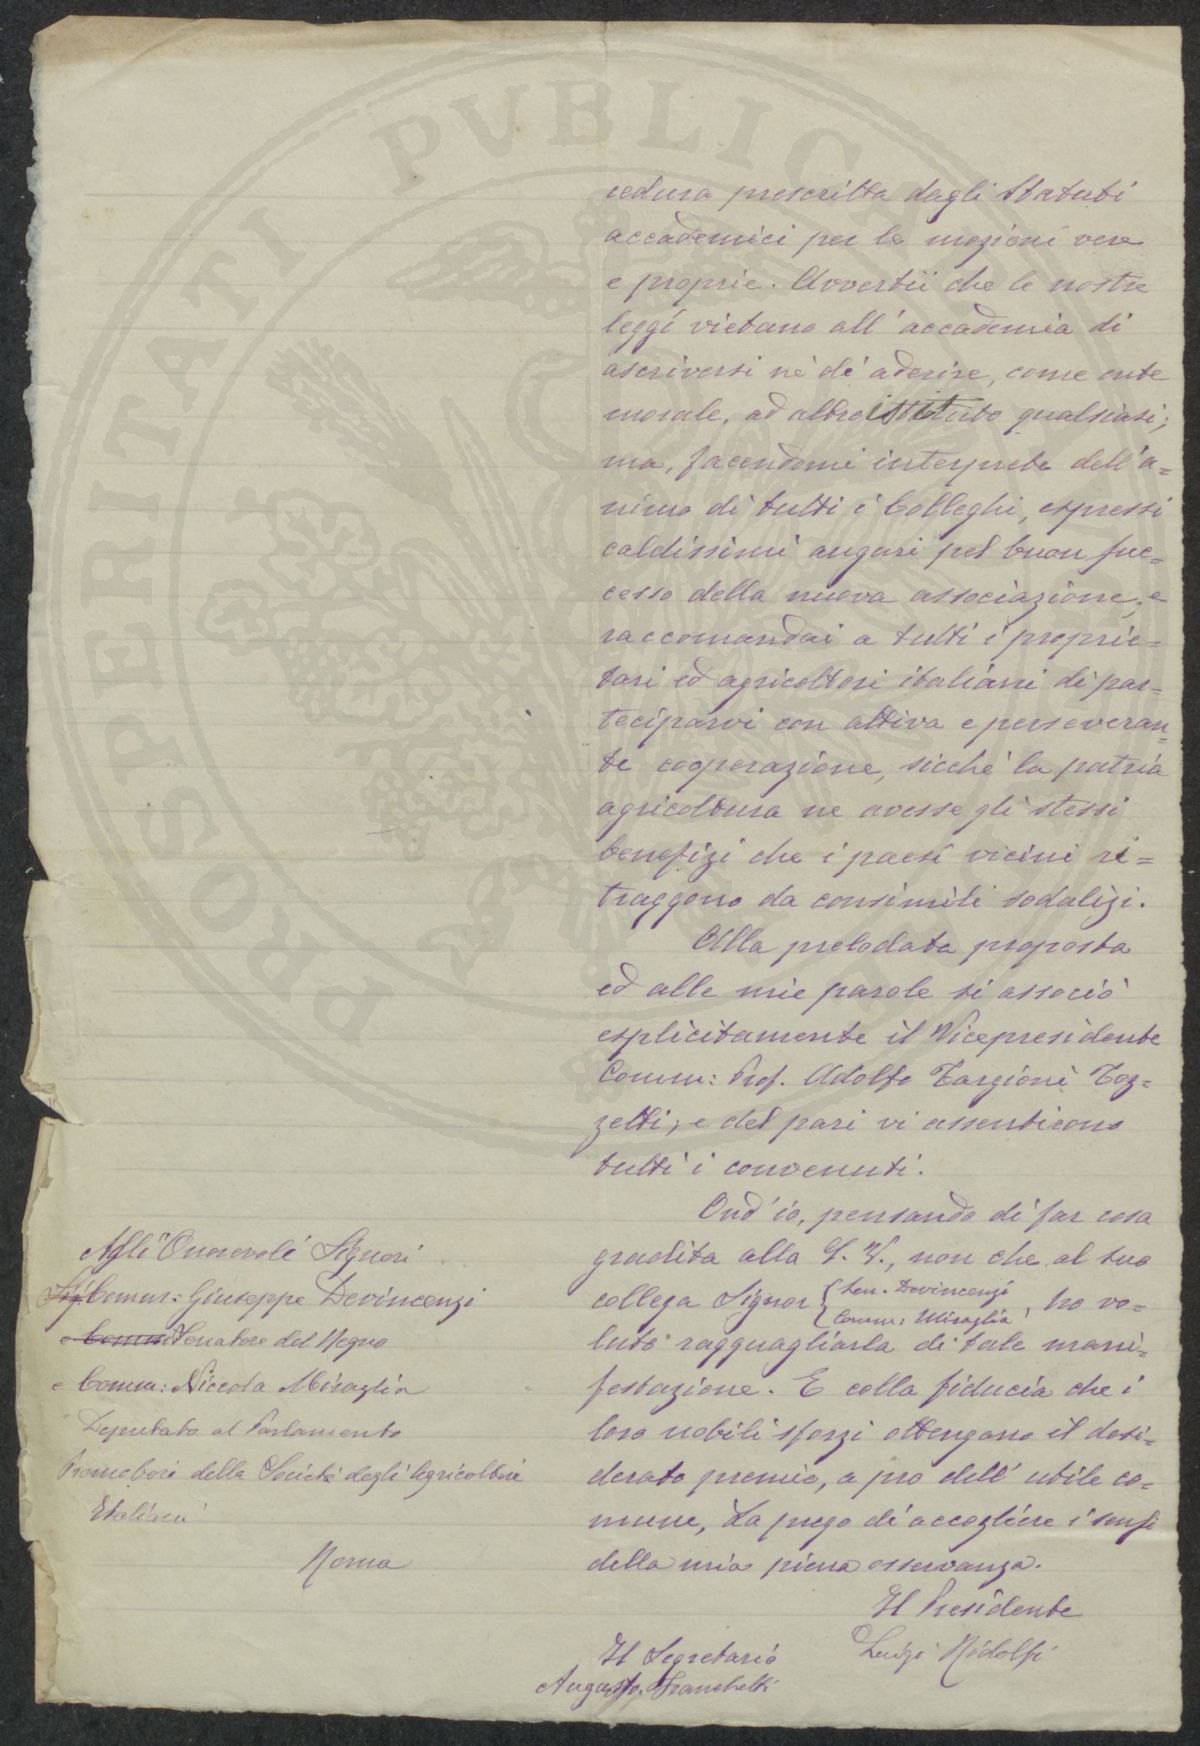 cedura prescritta dagli Statuti
accademici per le mozioni vere
e proprie. Avvertii che le nostre
leggi vietano all'accademia di
ascriversi nè di aderire, come ente
morale, ad altro istituto qualsiasi;
ma, facendomi interprete dell'a=
nimo di tutti i Colleghi, espressi
caldissimi auguri pel buon suc=
cesso della nuova associazione, e
raccomandai a tutti i proprie=
tari ed agricoltori italiani di par=
teciparvi con attiva e perseveran=
te cooperazione, sicchè la patria
agricoltura ne avesse gli stessi
benefizi che i paesi vicini ri=
traggono da consimili sodalizi.
Alla prelodata proposta
ed alle mie parole si associò
esplicitamente il Vicepresidente
Comm: Prof. Adolfo Targioni Toz=
zetti; e del pari vi assentirono
tutti i convenuti.
Ond'io, pensando di far cosa
gradita alla S. V., non che al suo
collega Signor { Sen. Devincenzi
Comm: Miraglia, ho vo=
luto ragguagliarla di tale mani=
festazione. E colla fiducia che i
loro nobili sforzi ottengano il desi=
derato premio, a pro dell'utile co=
mune, La prego di accogliere i sensi
della mia piena osservanza.
Il Presidente
Luigi Ridolfi
Il Segretario
Augusto Franchetti
Agli Onorevoli Signori
Comm: Giuseppe Devincenzi
Senatore del Regno
e Comm: Niccola Miraglia
Deputato al Parlamento
Promotori della Società degli Agricoltori
Italiani
Roma
PROSPERITATI PVBLICAE